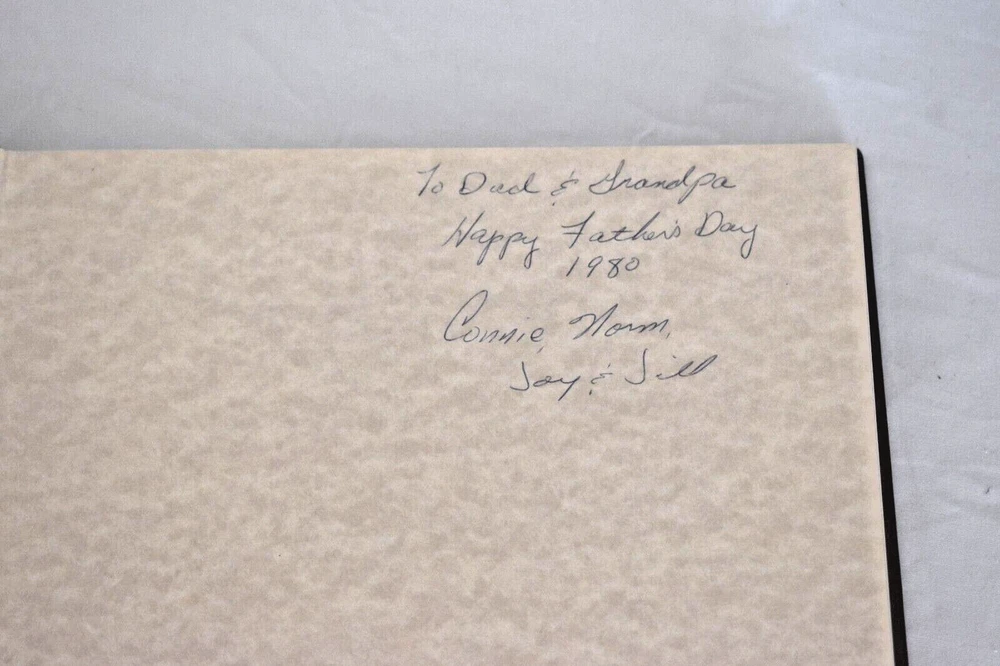 To Dad & Grandpa
Happy Father's Day
1980
Connie, Norm,
Joy & Jill